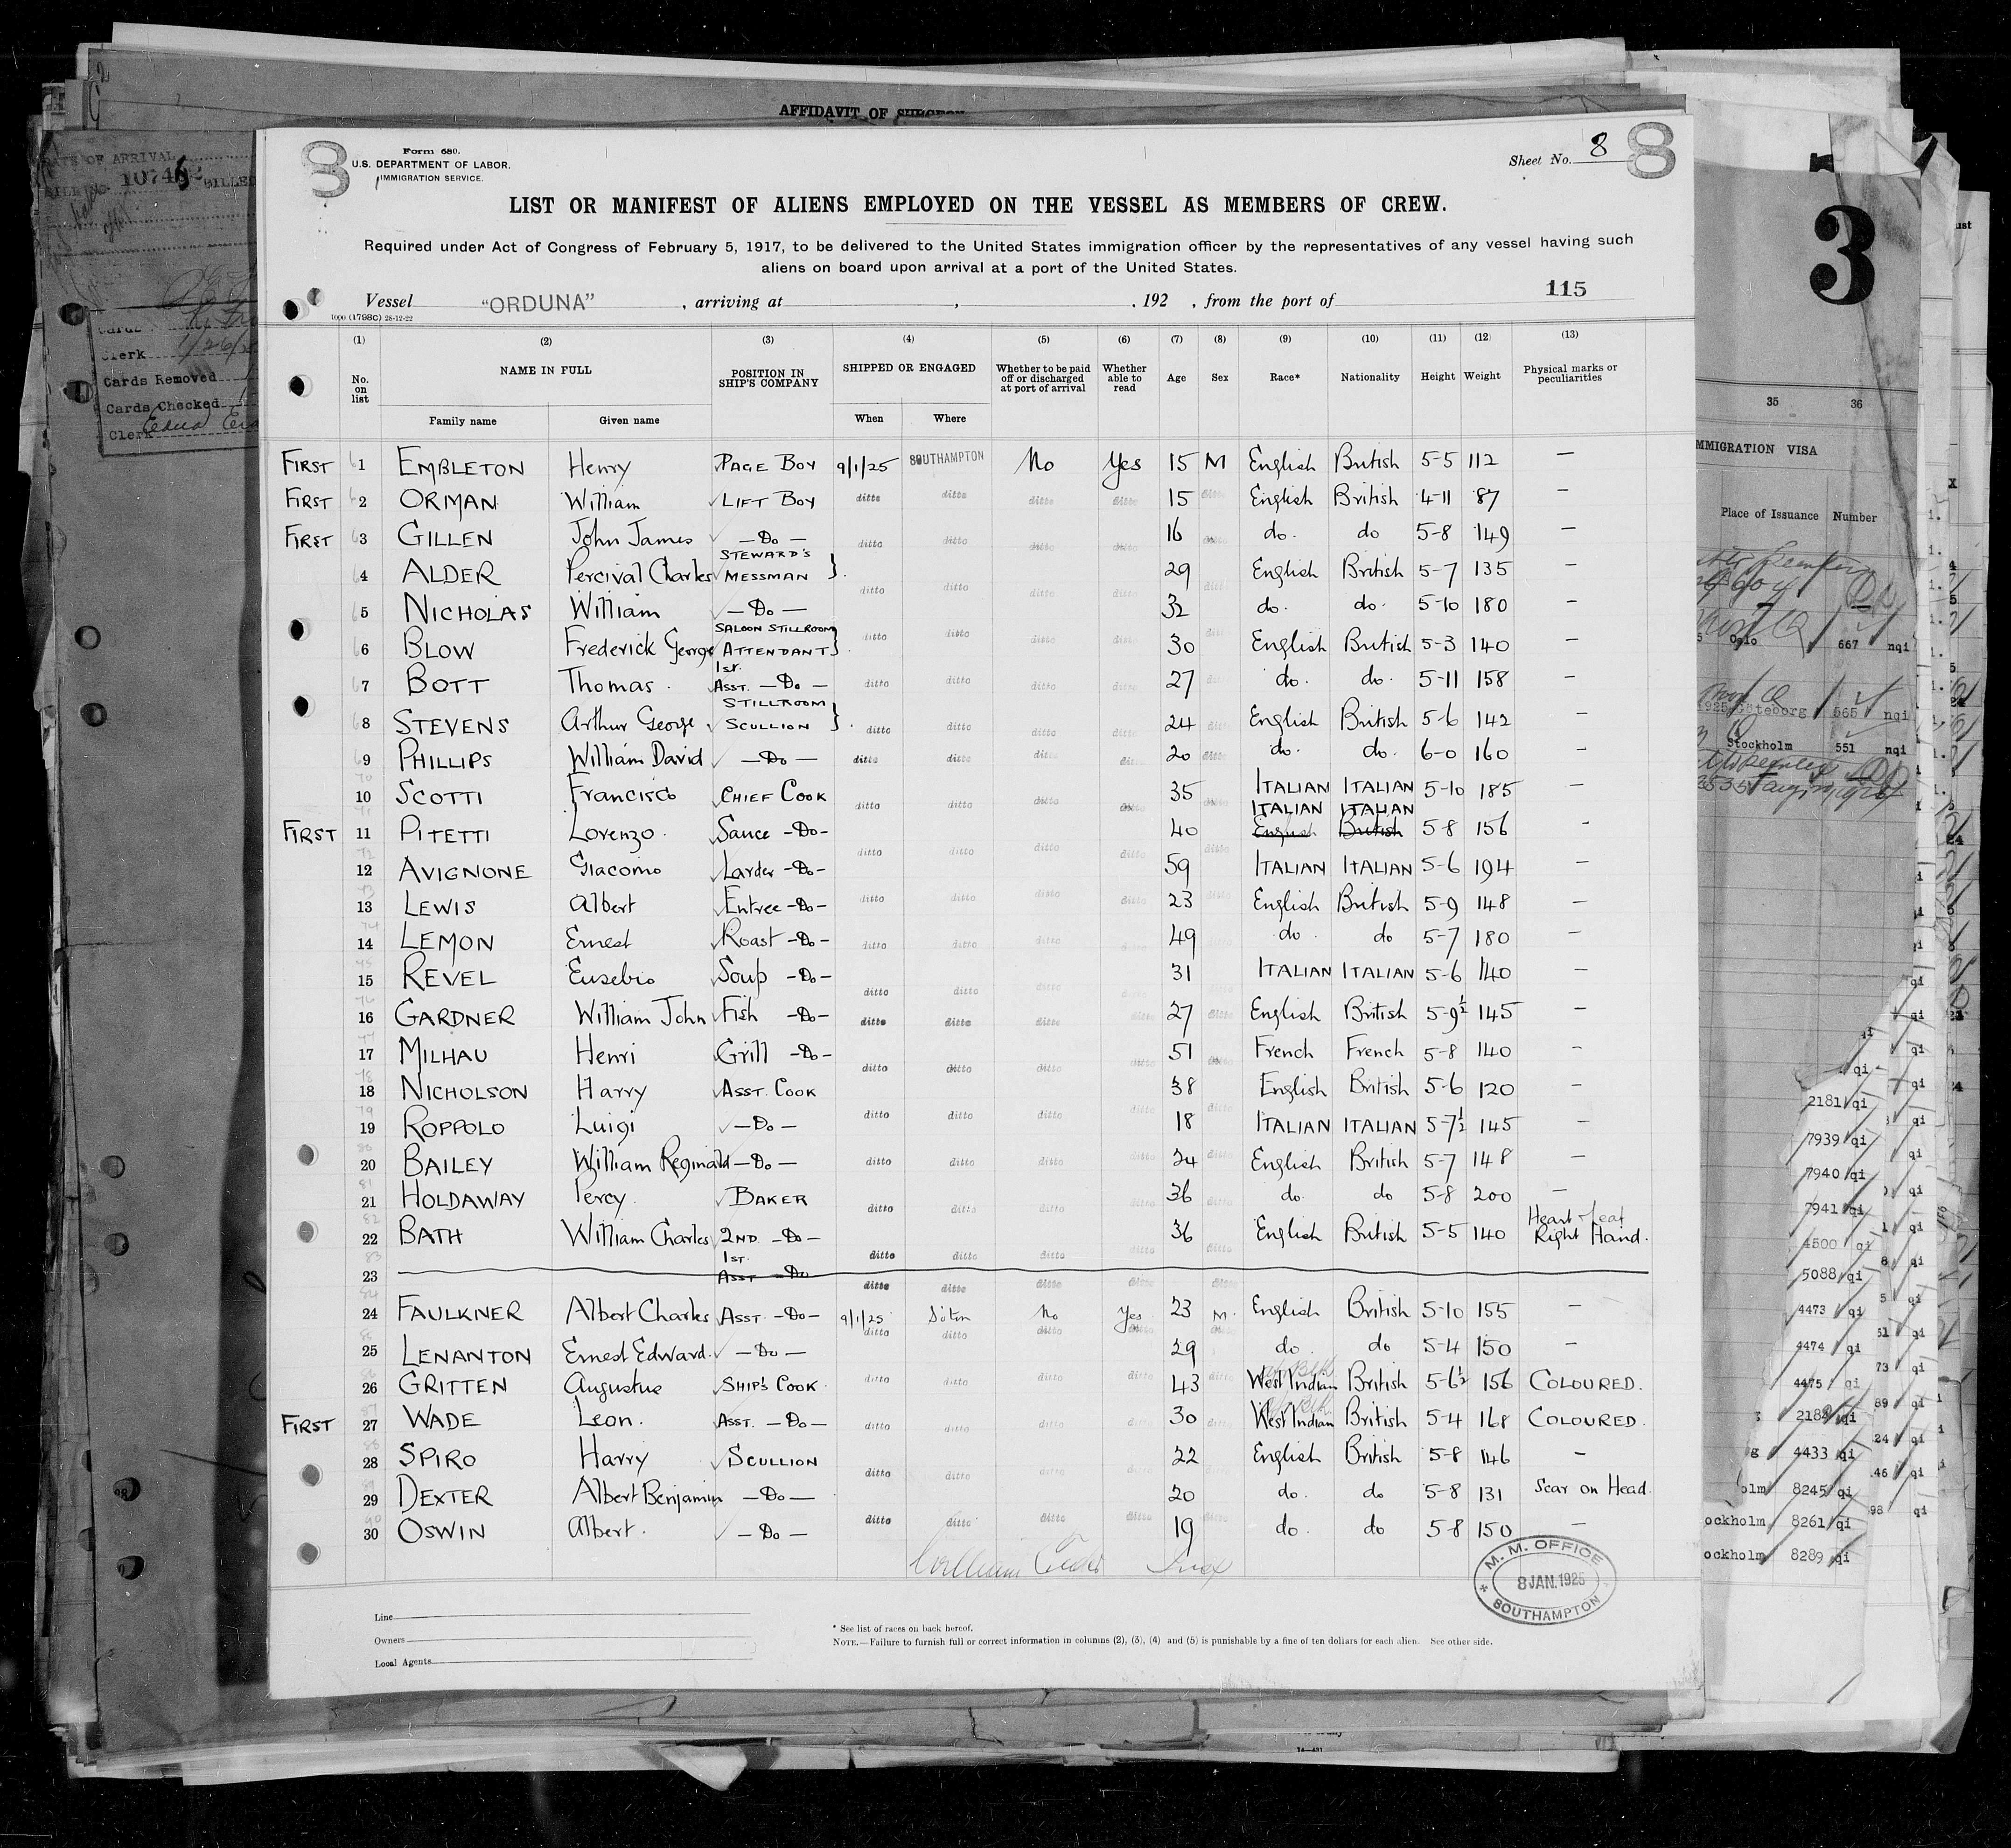 AFFIDAVIT OF SURGEON
8
Form 680.
U.S. DEPARTMENT OF LABOR.
IMMIGRATION SERVICE.
Sheet No. 8
8
LIST OR MANIFEST OF ALIENS EMPLOYED ON THE VESSEL AS MEMBERS OF CREW.
Required under Act of Congress of February 5, 1917, to be delivered to the United States immigration officer by the representatives of any vessel having such
aliens on board upon arrival at a port of the United States.
Vessel "ORDUNA", arriving at , , 192 , from the port of 115
1000 (1798C) 28-12-22
(1) (2) (3) (4) (5) (6) (7) (8) (9) (10) (11) (12 (13)
No. on list NAME IN FULL Family name Given name POSITION IN SHIP'S COMPANY SHIPPED OR ENGAGED When Where Whether to be paid off or discharged at port of arrival Whether able to read Age Sex Race* Nationality Height Weight Physical marks or peculiarities
FIRST 1 EMBLETON Henry PAGE BOY 9/1/25 SOUTHAMPTON No Yes 15 M English British 5-5 112 —
FIRST 2 ORMAN William LIFT BOY ditto ditto ditto ditto 15 ditto English British 4-11 87 —
FIRST 3 GILLEN John James —Do— ditto ditto ditto ditto 16 ditto do. do 5-8 149 —
4 ALDER Percival Charles STEWARD'S MESSMAN ditto ditto ditto ditto 29 ditto English British 5-7 135 —
5 NICHOLAS William —Do— 32 do. do. 5-10 180 —
6 BLOW Frederick George SALOON STILLROOM ATTENDANT ditto ditto ditto ditto 30 ditto English British 5-3 140 —
7 BOTT Thomas. 1ST. ASST. —Do— ditto ditto ditto ditto 27 ditto do. do. 5-11 158 —
8 STEVENS Arthur George STILLROOM SCULLION ditto ditto ditto ditto 24 ditto English British 5-6 142 —
9 PHILLIPS William David —Do— ditto ditto ditto ditto 20 ditto do. do. 6-0 160 —
10 SCOTTI Francisco CHIEF COOK ditto ditto ditto ditto 35 ditto ITALIAN ITALIAN 5-10 185 —
FIRST 11 PITETTI Lorenzo. Sauce -Do- 40 ITALIAN ITALIAN English British 5-8 156 —
12 AVIGNONE Giacomo Larder -Do- ditto ditto ditto ditto 59 ditto ITALIAN ITALIAN 5-6 194 —
13 LEWIS Albert Entree -Do- ditto ditto ditto ditto 23 ditto English British 5-9 148 —
14 LEMON Ernest Roast -Do- ditto ditto ditto ditto 49 ditto do. do 5-7 180 —
15 REVEL Eusebio Soup -Do- ditto ditto ditto ditto 31 ITALIAN ITALIAN 5-6 140 —
16 GARDNER William John Fish -Do- ditto ditto ditto ditto 27 ditto English British 5-9½ 145 —
17 MILHAU Henri Grill -Do- ditto ditto ditto ditto 51 ditto French French 5-8 140 —
18 NICHOLSON Harry ASST. COOK 38 English British 5-6 120 —
19 ROPPOLO Luigi —Do— ditto ditto ditto ditto 18 ditto ITALIAN ITALIAN 5-7½ 145 —
20 BAILEY William Reginald —Do— ditto ditto ditto ditto 24 ditto English British 5-7 148 —
21 HOLDAWAY Percy. BAKER ditto ditto ditto ditto 36 ditto do. do 5-8 200 —
22 BATH William Charles 2ND -Do- ditto ditto ditto ditto 36 ditto English British 5-5 140 Right Hand.
23 1ST. ASST —Do ditto ditto ditto ditto ditto
24 FAULKNER Albert Charles ASST. -Do- 9/1/25 Soton No Yes 23 M. English British 5-10 155 —
25 LENANTON Ernest Edward. —Do— ditto ditto ditto ditto 29 ditto do. do 5-4 150 —
26 GRITTEN Augustus SHIP'S COOK. ditto ditto ditto ditto 43 ditto West Indian British 5-6½ 156 COLOURED.
FIRST 27 WADE Leon. ASST. -Do- ditto ditto ditto ditto 30 ditto West Indian British 5-4 168 COLOURED.
28 SPIRO Harry SCULLION 22 English British 5-8 146 —
29 DEXTER Albert Benjamin —Do— ditto ditto ditto ditto 20 ditto do. do 5-8 131 Scar on Head.
30 OSWIN Albert. —Do— ditto ditto ditto ditto 19 ditto do. do 5-8 150 —
M. M. OFFICE
8 JAN. 1925
SOUTHAMPTON
Line
Owners
Local Agents
* See list of races on back hereof.
NOTE.—Failure to furnish full or correct information in columns (2), (3), (4) and (5) is punishable by a fine of ten dollars for each alien. See other side.
Clerk
Cards Removed
Cards Checked
Clerk
3
35 36
IMMIGRATION VISA
Place of Issuance Number
Oslo 667 nqi
Göteborg 565 nqi
Stockholm 551 nqi
2181 qi
7939 qi
7940 qi
7941 qi
4500 qi
5088 qi
4473 qi
4474 qi
4475 qi
4433 qi
8245 qi
ockholm 8261 qi
ockholm 8289 qi